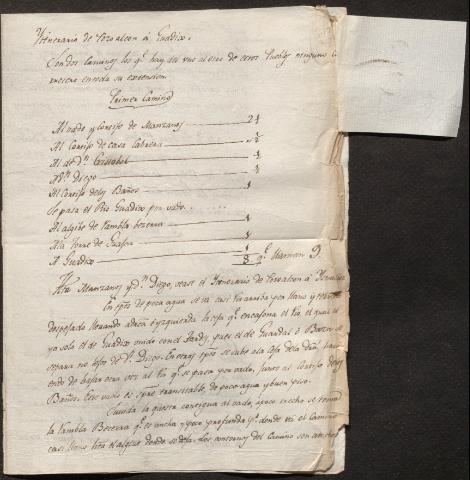 Ytinerario de Pozo alcon á Guadix.
Son dos caminos los q.e hay de uno al otro de estos Pueblos ninguno
merece en toda su extension
Primer Camino
Al vado y Cortijo de Manzano 2 1/2
Al Cortijo de casa Cabrera 1/2
Al de D.n Cristobal 1/2
A D.n Diego 1/2
Al Cortijo de los Baños 1
Se pasa el Rio Guadix por vado
Al algibe de rambla bezerra 1
A la torre de Guajar 1
A Guadix 1
8 q.e llaman 9
Hta Manzano y D.n Diego, vease el Ytinerario de Pozo alcon á
En tpo de poca agua se va casi rio arriba por llano y
despejado llevando a derecha e yzquierda la ceja q.e encajona el rio, el qual es
ya solo el de Guadix unido con el Fardes, pues el de Guardal ó Barbata se
separa no lejos de D. Diego. En otros tpos se sube a la ceja de la dra,
endo de bajar otra vez al rio q.e se pasa por vado, junto al Cortijo de los
Baños. Este vado es spre transitable, de poca agua y buen piso.
Subida la cuesta contigua al vado, a poco trecho se toma
la rambla Bezerra q.e es ancha y poco profunda, p.r donde va el camino
casi llano hta el algibe donde se deja. Los contornos del camino son